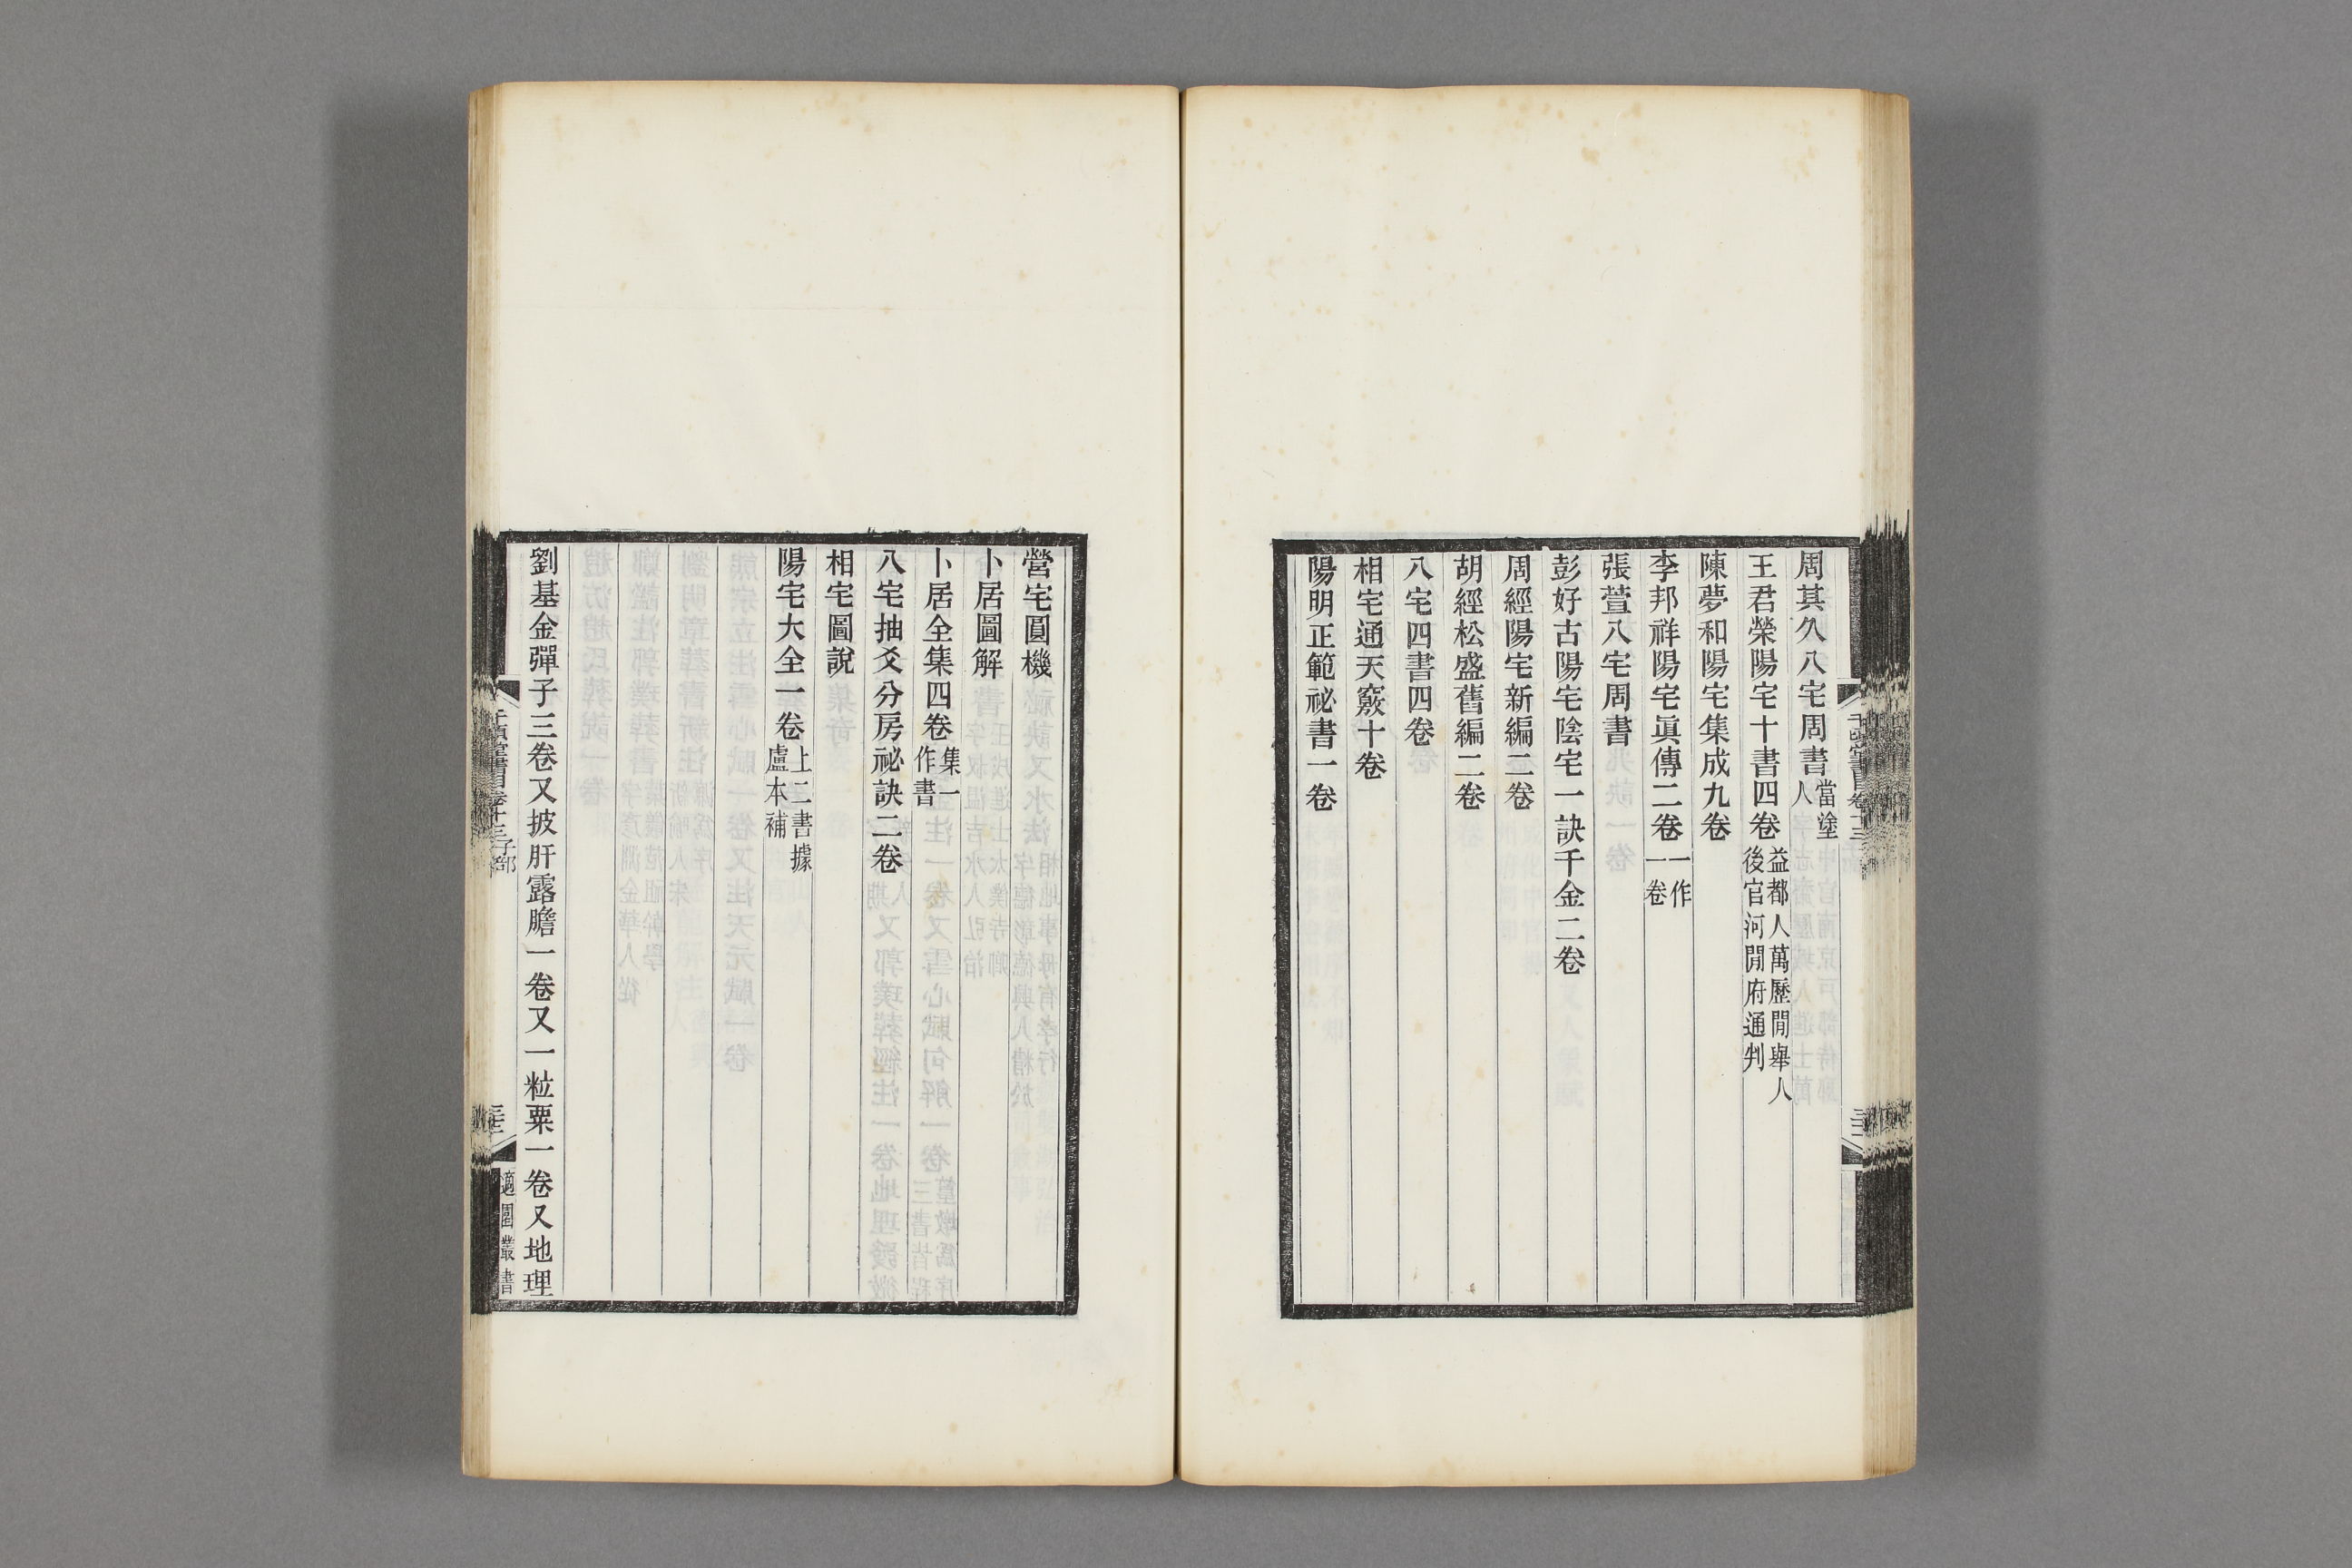 周其久八宅周書當塗人
王君榮陽宅十書四卷益都人萬歷閒舉人後官河閒府通判
陳夢和陽宅集成九卷
李邦祥陽宅眞傳二卷一作一卷
張萱八宅周書
彭好古陽宅陰宅一訣千金二卷
周經陽宅新編二卷
胡經松盛舊編二卷
八宅四書四卷
相宅通天竅十卷
陽明正範祕書一卷
營宅圓機
卜居圖解
卜居全集四卷集一作書
八宅抽爻分房祕訣二卷
相宅圖說
陽宅大全一卷上二書據盧本補
劉基金彈子三卷又披肝露膽一卷又一粒粟一卷又地理
千頃堂書目卷十三子部
適園叢書